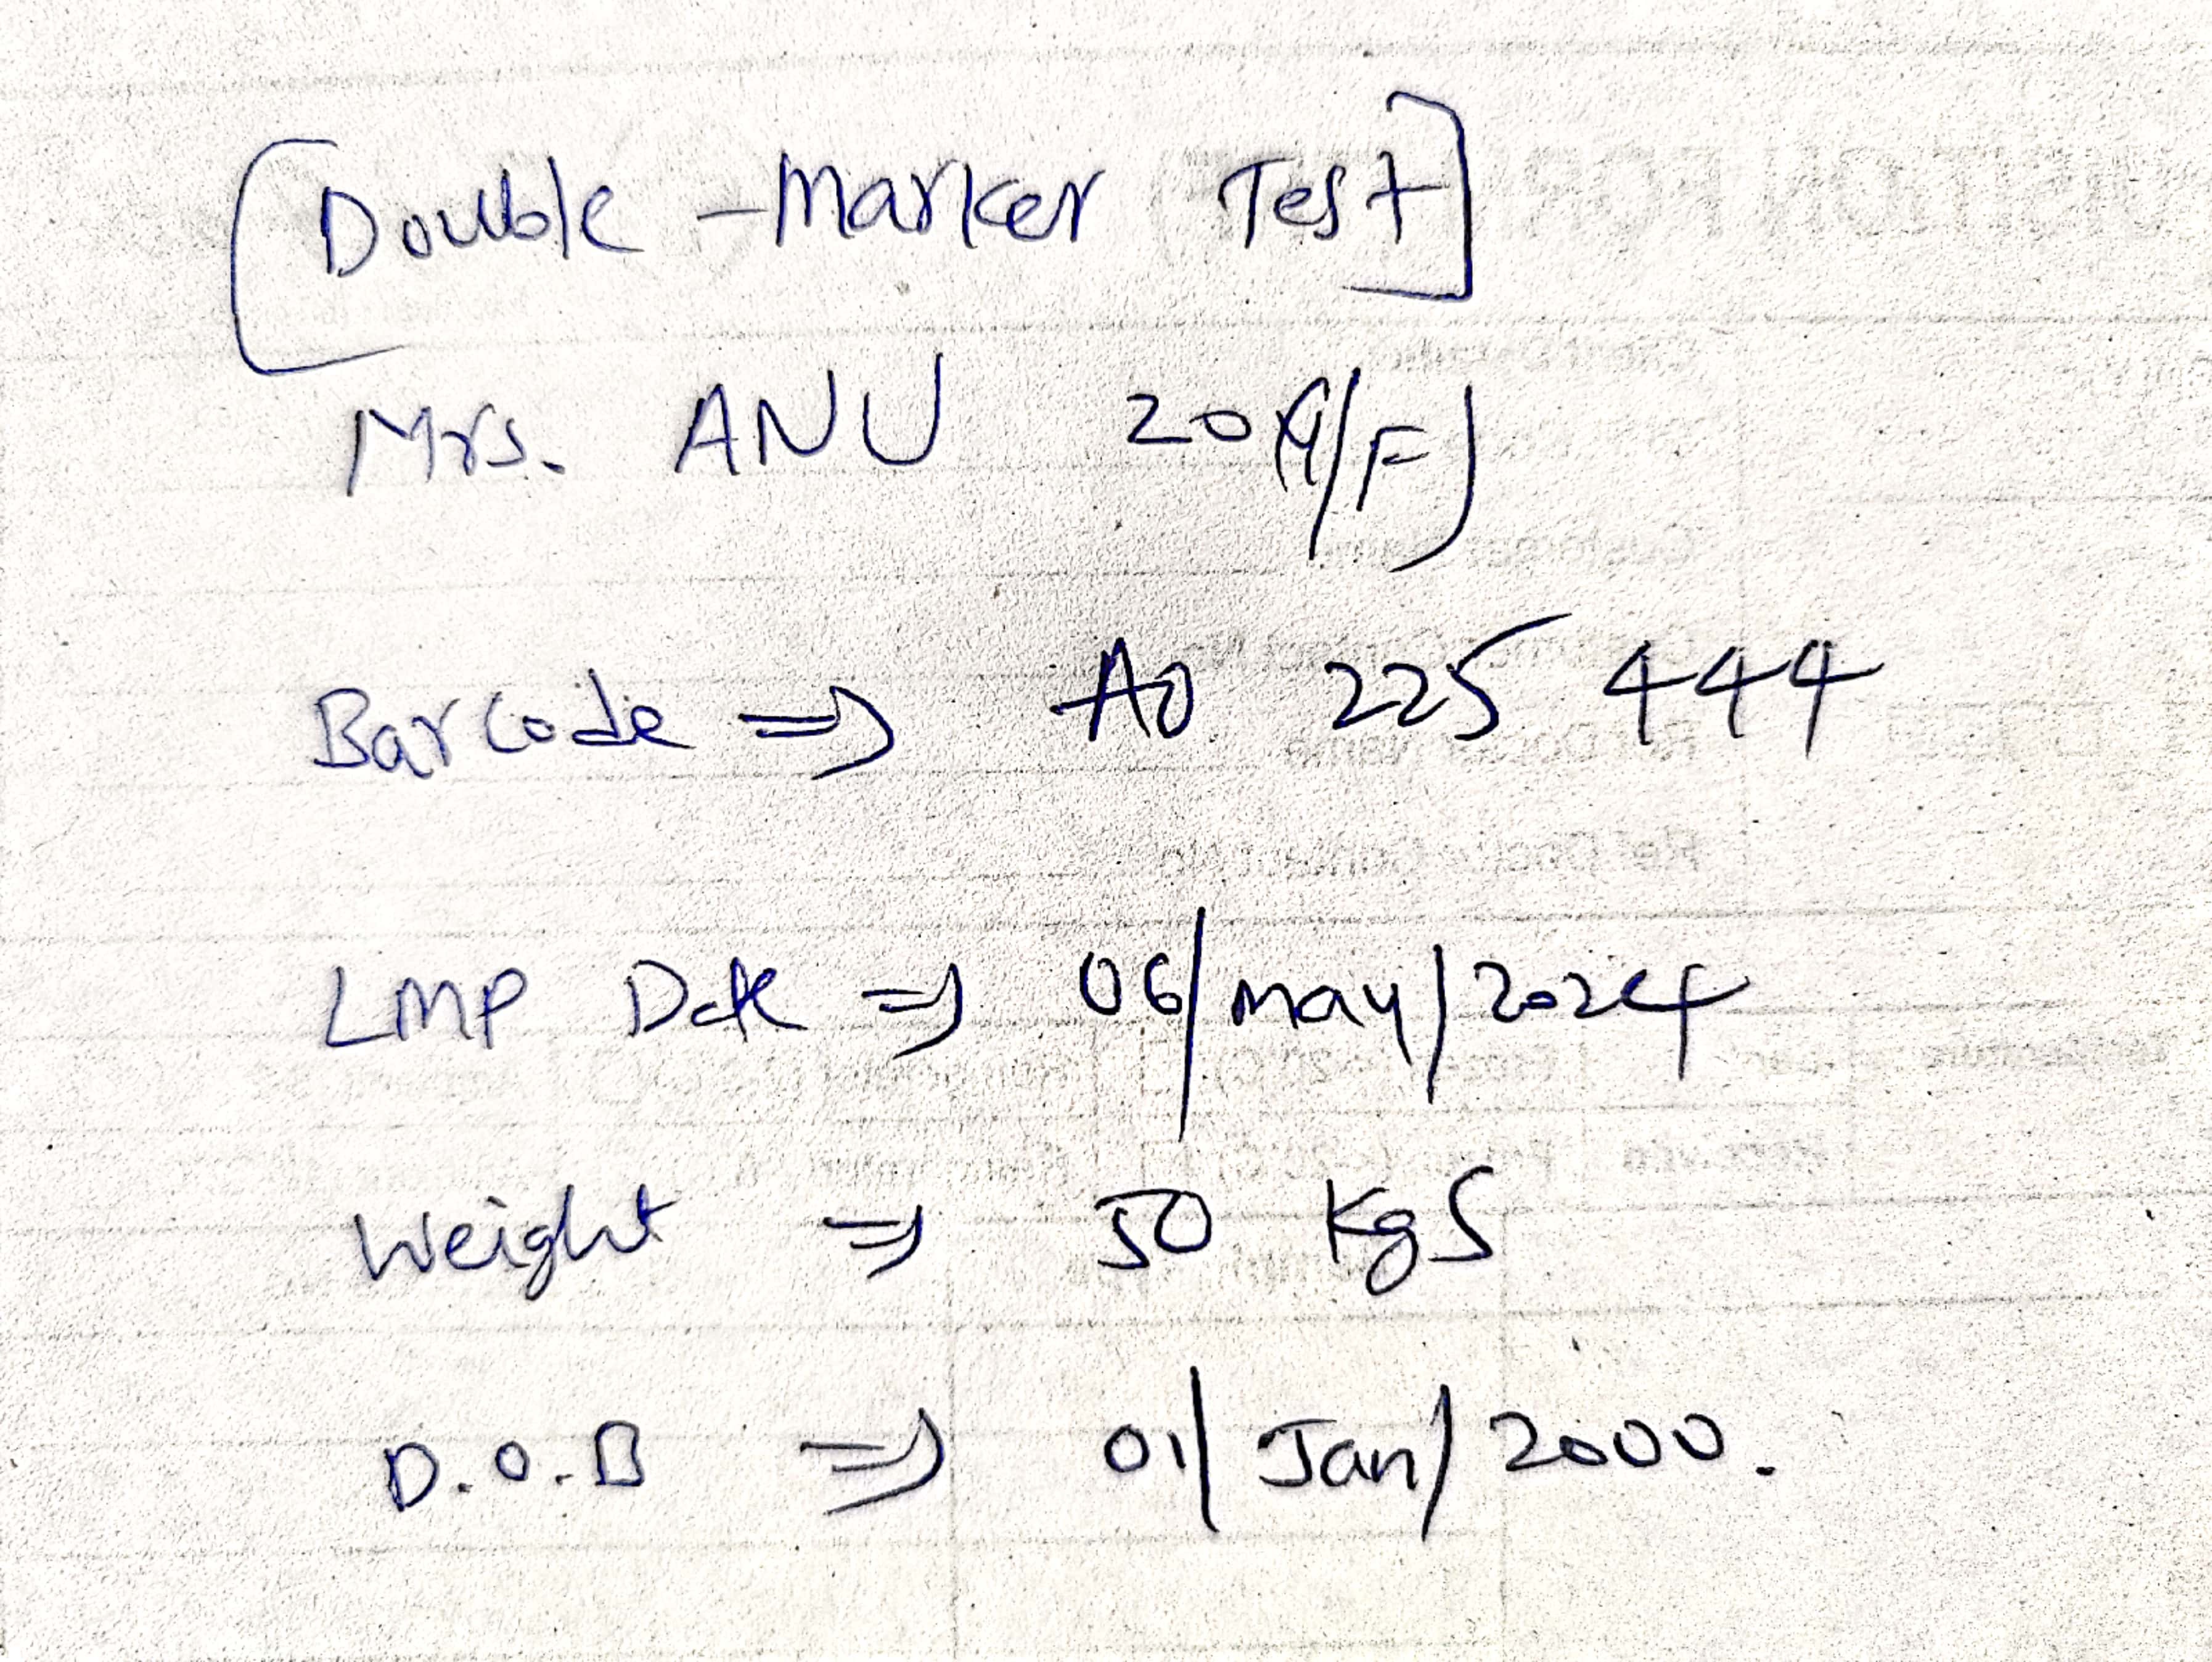 [Double - Marker Test]
Mrs. ANU 20(Y/F)
Barcode ⇒ A0 225 444
LMP Date ⇒ 06/may/2024
Weight ⇒ 50 KgS
D.O.B ⇒ 01/Jan/2000.